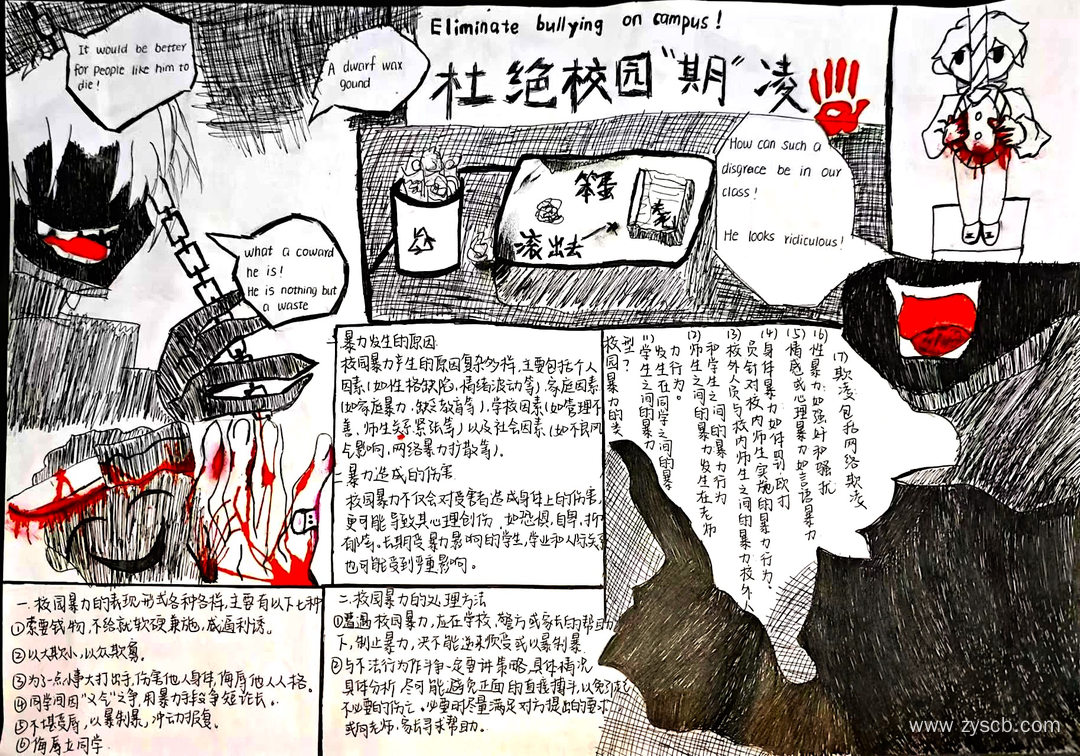 Eliminate bullying on campus!
杜绝校园"期"凌
It would be better
for people like him to
die!
A dwarf wax
gound
what a coward
he is!
He is nothing but
a waste
笨蛋
滚出去
How can such a
disgrace be in our
class!
He looks ridiculous!
一暴力发生的原因
校园暴力产生的原因复杂多样,主要包括个人
因素(如性格缺陷,情绪波动等),家庭因素
(如家庭暴力,缺乏教育等),学校因素(如管理不
善、师生关系紧张等)以及社会因素(如不良风
气影响,网络暴力扩散等)。
一暴力造成的伤害
校园暴力不仅会对受害者造成身体上的伤害,
更可能导致其心理创伤,如恐惧,自卑,抑
郁等。长期受暴力影响的学生,学业和人际关系
也可能受到严重影响。
校园暴力的类
型?
(1)学生之间的暴力
发生在同学之间的暴
力行为。
(2)师生之间的暴力发生在老师
和学生之间的暴力行为
(3)校外人员与校内师生之间的暴力校外人
员针对校内师生实施的暴力行为、
(4)身体暴力如体罚,殴打
(5)情感或心理暴力如言语暴力
(6)性暴力如强奸和骚扰
(7)欺凌包括网络欺凌
一.校园暴力的表现形式各种各样,主要有以下七种
①索要钱物,不给就软硬兼施,威逼利诱。
②以大欺小,以众欺寡。
③为了一点小事大打出手,伤害他人身体,侮辱他人人格。
④同学间因"义气"之争,用暴力手段争短论长。
⑤不堪受辱,以暴制暴,冲动报复。
⑥侮辱女同学
二.校园暴力的处理方法
①遭遇校园暴力,应在学校,警方或家长的帮助
下,制止暴力,决不能逆来顺受或以暴制暴
②与不法行为作斗争一定要讲策略,具体情况
具体分析,尽可能避免正面的直接搏斗,以免引起
不必要的伤亡。必要时尽量满足对方提出的要求
或向老师,家长寻求帮助。
www.zyscb.com